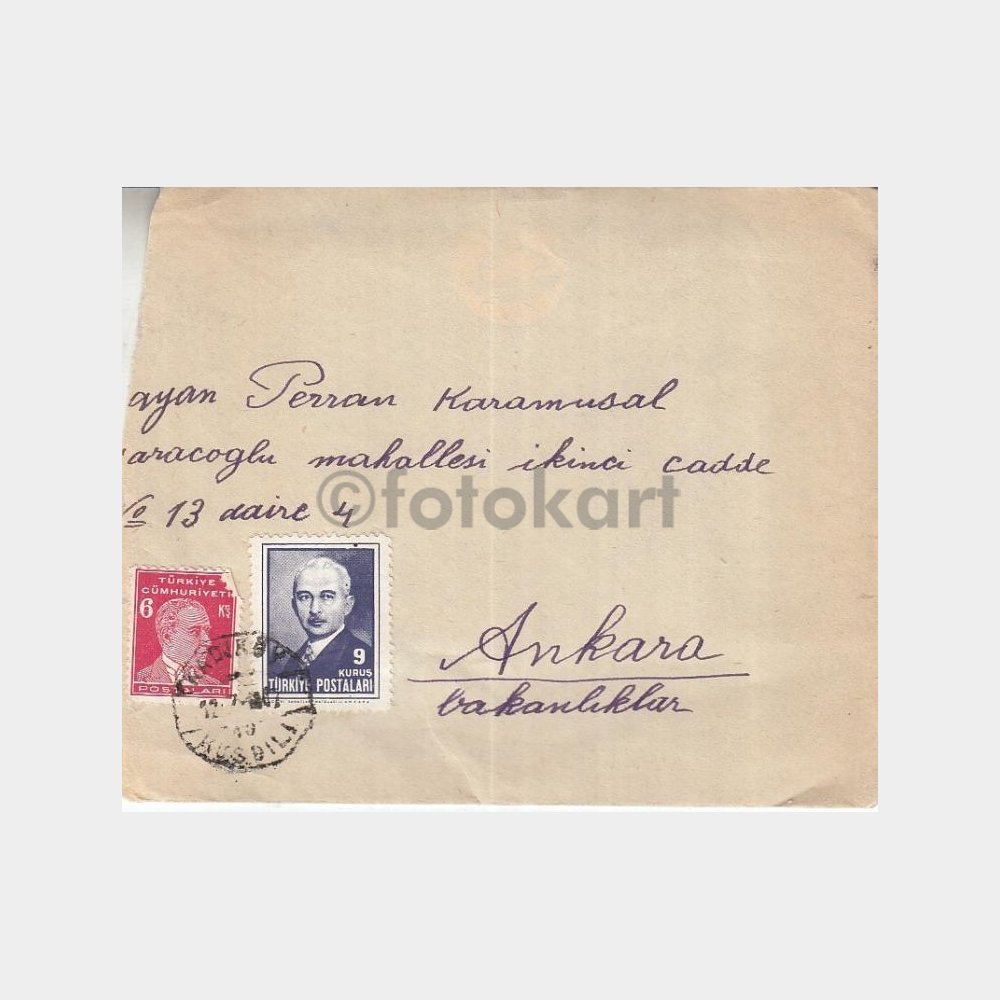 ayan Perran Karamusal
aracoglu mahallesi ikinci cadde
No 13 daire 4
©fotokart
TÜRKİYE
CÜMHURİYETİ
6 KŞ
POSTALARI
9
KURUŞ
TÜRKİYE POSTALARI
KADIKÖY
KUŞDİLİ
Ankara
bakanlıklar